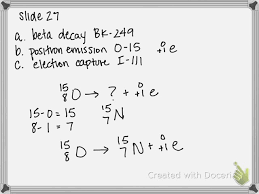 Slide 27
a. beta decay BK-249
b. position emission O-15 ⁰₊₁e
c. election capture I-111
¹⁵₈O → ? + ⁰₊₁e
15-0 = 15
8-1 = 7
¹⁵₇N
¹⁵₈O → ¹⁵₇N + ⁰₊₁e
Created with Doceri